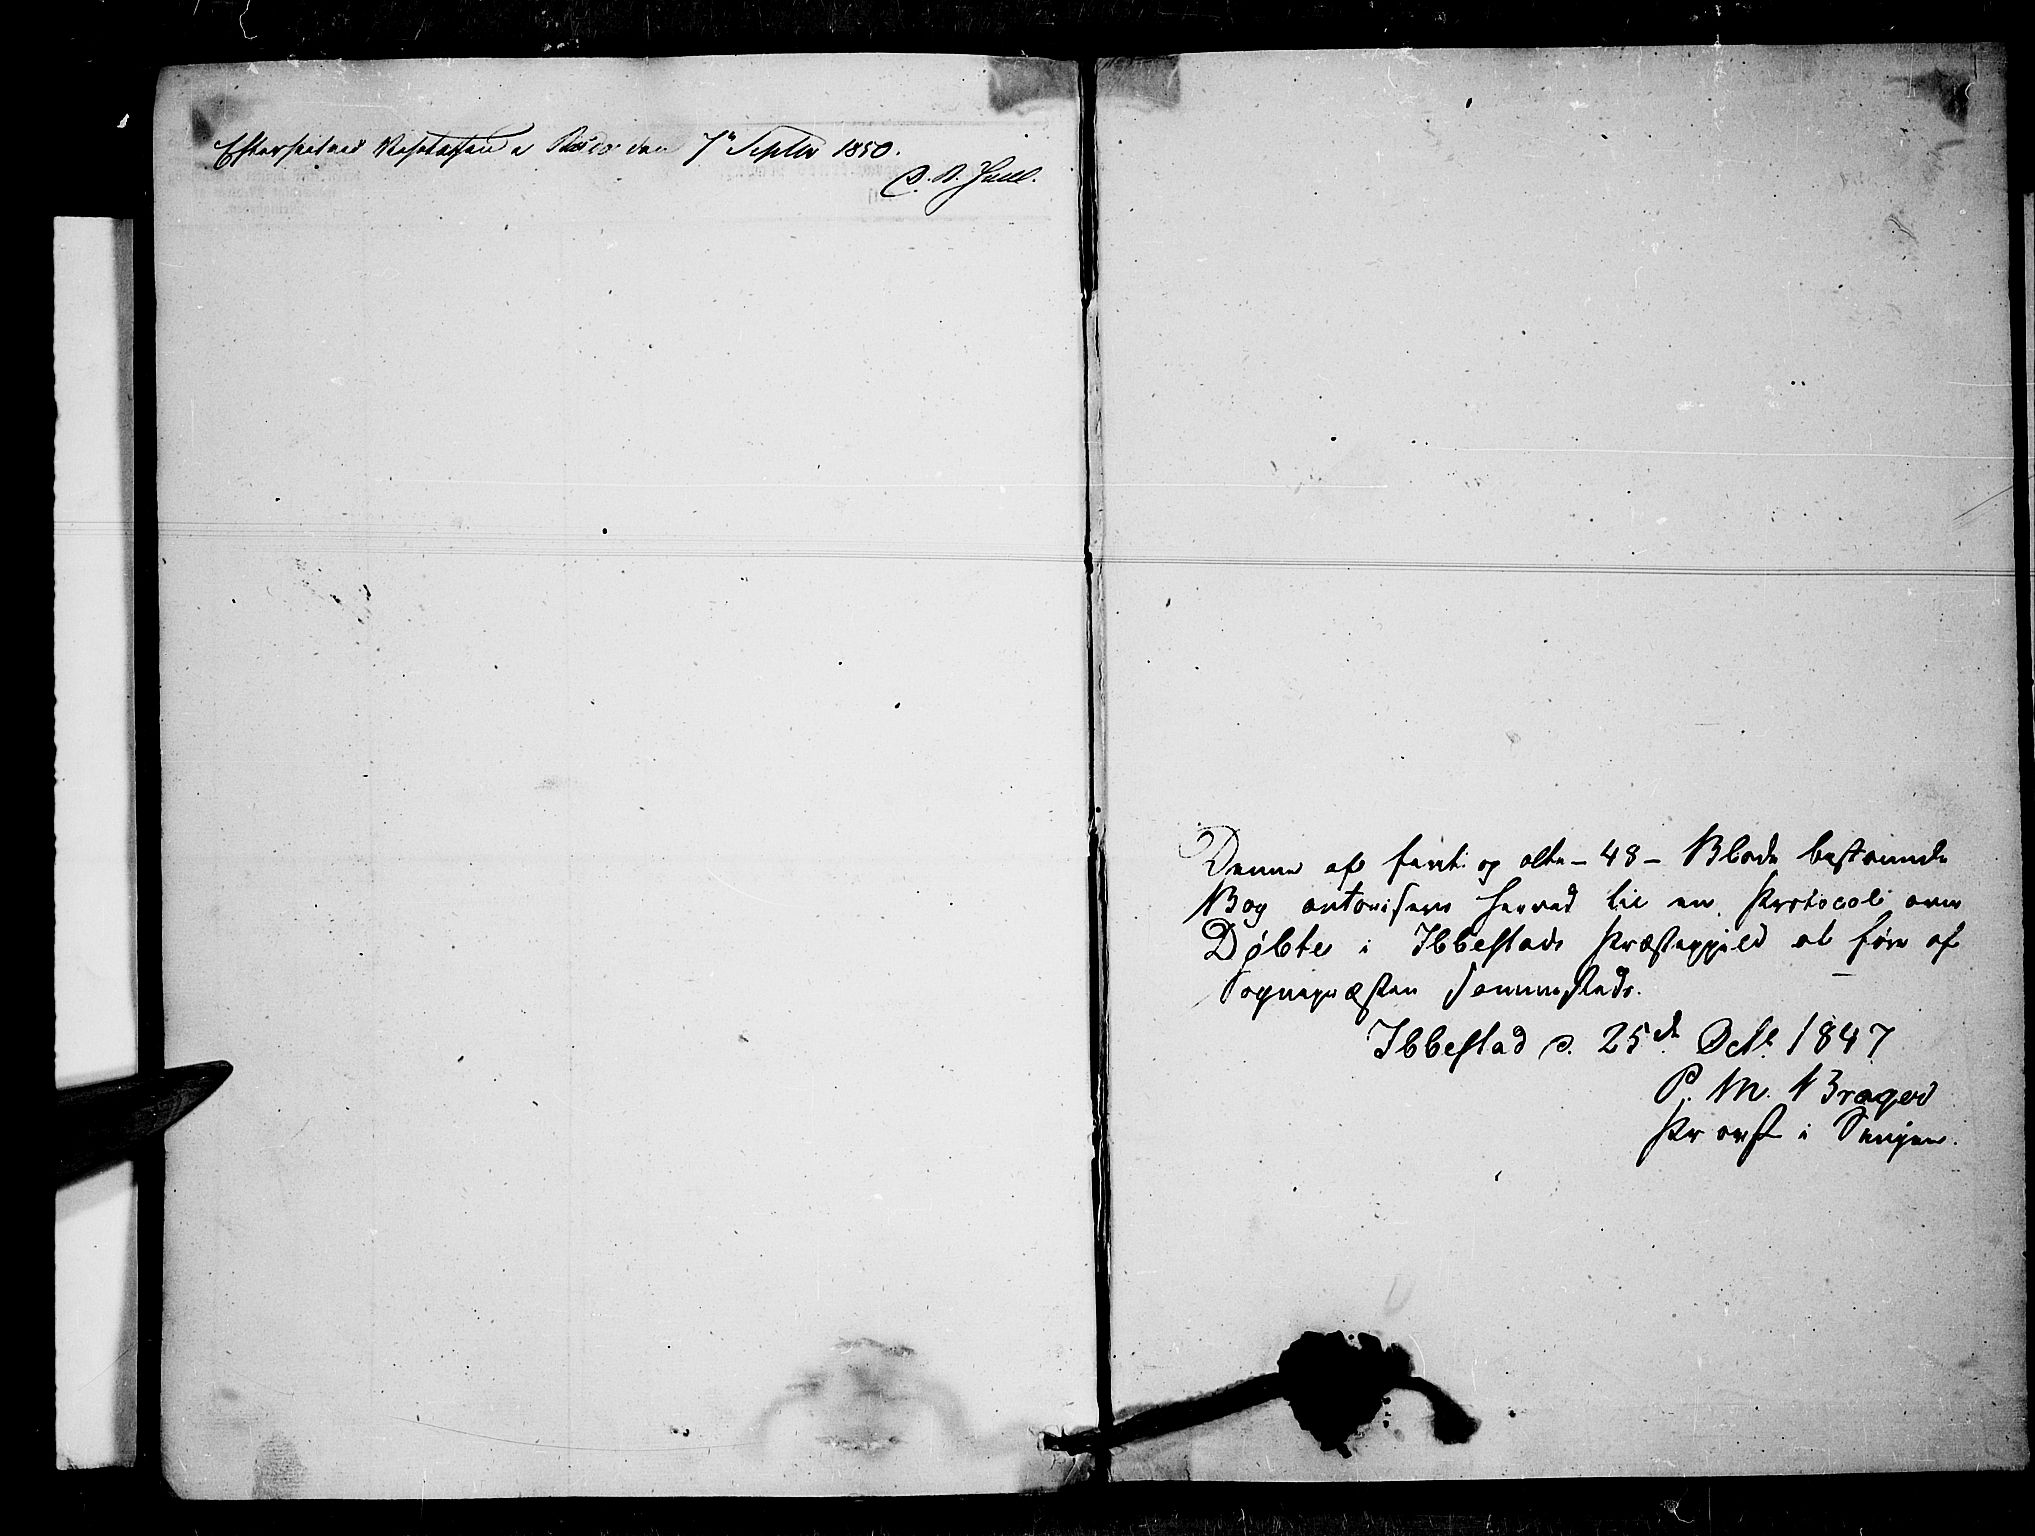 Efterseet ved Visitatsen den 7de Septbr 1850.
D. B. Juell.
Denne af førti og otte - 48 - Blade bestaaende
Bog autoriseres herved til en Protocol over
Døbte i Ibbestads Præstegjeld at føre af
Sognepræsten Sommerfeldt.
Ibbestad d. 25de Octb. 1847
P. M. Brager
Provst i Senjen.